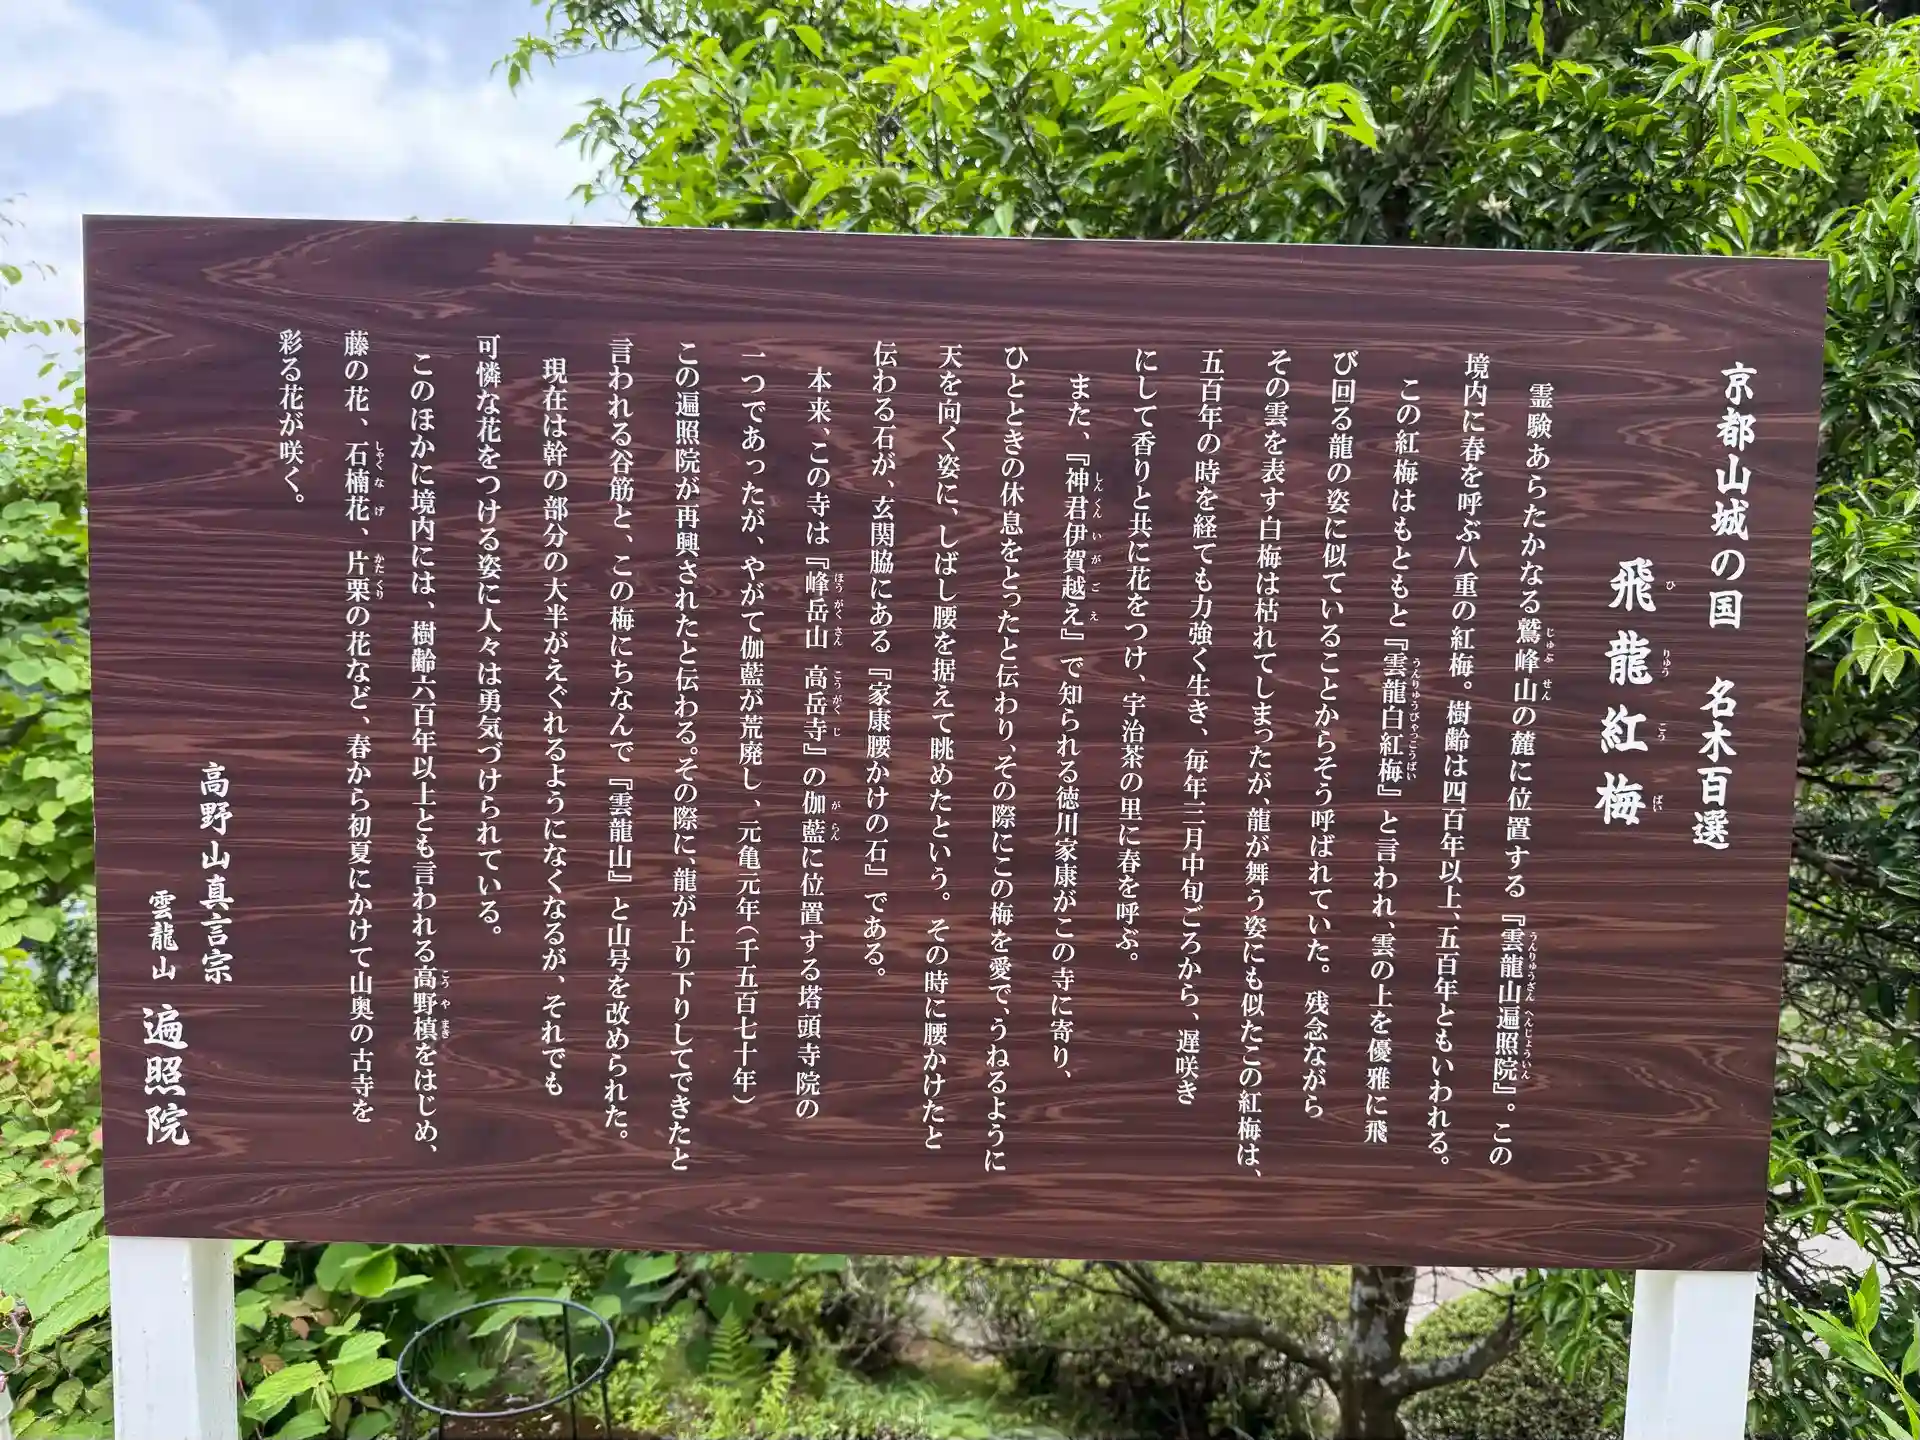 京都山城の国　名木百選
飛龍紅梅
ひりゅうこうばい
霊験あらたかなる鷲峰山の麓に位置する『雲龍山遍照院』。この
じゅぶせん　うんりゅうざんへんじょういん
境内に春を呼ぶ八重の紅梅。樹齢は四百年以上、五百年ともいわれる。
この紅梅はもともと『雲龍白紅梅』と言われ、雲の上を優雅に飛
うんりゅうびゃっこうばい
び回る龍の姿に似ていることからそう呼ばれていた。残念ながら
その雲を表す白梅は枯れてしまったが、龍が舞う姿にも似たこの紅梅は、
五百年の時を経ても力強く生き、毎年三月中旬ごろから、遅咲き
にして香りと共に花をつけ、宇治茶の里に春を呼ぶ。
また、『神君伊賀越え』で知られる徳川家康がこの寺に寄り、
しんくんいがごえ
ひとときの休息をとったと伝わり、その際にこの梅を愛で、うねるように
天を向く姿に、しばし腰を据えて眺めたという。その時に腰かけたと
伝わる石が、玄関脇にある『家康腰かけの石』である。
本来、この寺は『峰岳山　高岳寺』の伽藍に位置する塔頭寺院の
ほうがくさん　こうがくじ　がらん
一つであったが、やがて伽藍が荒廃し、元亀元年（千五百七十年）
この遍照院が再興されたと伝わる。その際に、龍が上り下りしてできたと
言われる谷筋と、この梅にちなんで『雲龍山』と山号を改められた。
現在は幹の部分の大半がえぐれるようになくなるが、それでも
可憐な花をつける姿に人々は勇気づけられている。
このほかに境内には、樹齢六百年以上とも言われる高野槙をはじめ、
こうやまき
藤の花、石楠花、片栗の花など、春から初夏にかけて山奥の古寺を
しゃくなげ　かたくり
彩る花が咲く。
高野山真言宗
雲龍山　遍照院